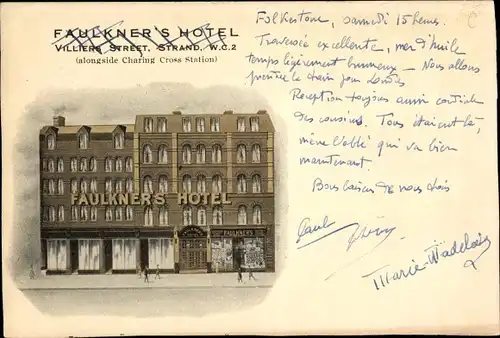 FAULKNER'S HOTEL
VILLIERS STREET, STRAND, W.C.2
(alongside Charing Cross Station)
FAULKNER'S HOTEL
FAULKNER'S
Folkestone, samedi 15 heures.
Traversée excellente, mer d'huile
temps légèrement brumeux - Nous allons
prendre le train pour Londres
Réception toujours aussi cordiale
des cousins. Tous étaient là,
même l'abbé qui va bien
maintenant.
Bons baisers de nous trois
Paul
Marie-Madeleine